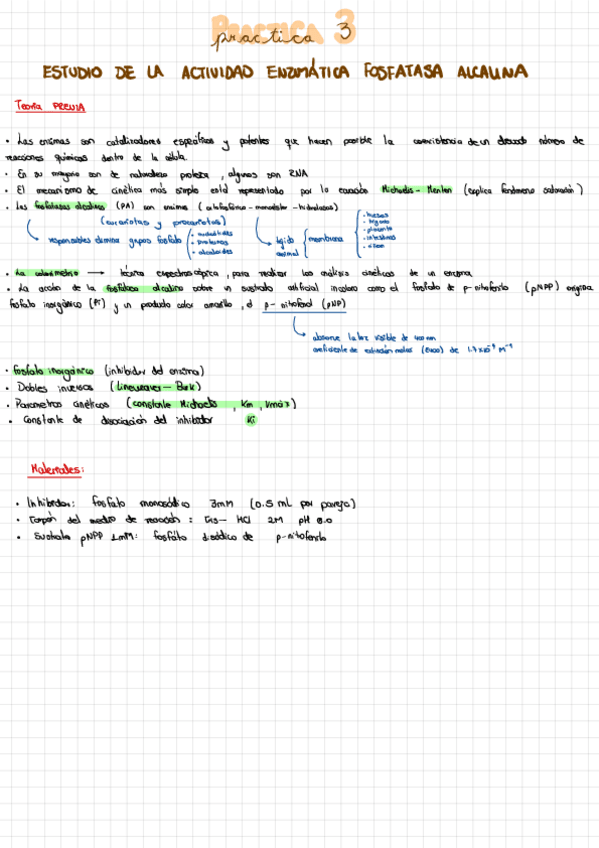 PRACTICA 3
practica
ESTUDIO DE LA ACTIVIDAD ENZIMÁTICA FOSFATASA ALCALINA
Teoría PREVIA
• Las enzimas son catalizadores específicos y potentes que hacen posible la coexistencia de un elevado número de
reacciones químicas dentro de la célula.
• En su mayoría son de naturaleza proteica, algunos son RNA
• El mecanismo de cinética más simple está representado por la ecuación Michaelis - Menten (explica fenómeno saturación)
• Las fosfatasas alcalinas (PA) son enzimas (ortofosfórico - monoéster - hidrolasas)
(eucariotas y procariotas)
responsables eliminar grupos fosfato
• nucleótidos
• proteínas
• alcaloides
tejido animal
membrana
• huesos
• hígado
• placenta
• intestinos
• riñon
• La colorimetría → técnica espectroscópica, para realizar los análisis cinéticos de un enzima
• La acción de la fosfatasa alcalina sobre un sustrato artificial incoloro como el fosfato de p-nitrofenilo (pNPP) origina
fosfato inorgánico (Pi) y un producto color amarillo, el p-nitrofenol (pNP)
absorve la luz visible de 400 nm
coeficiente de extinción molar (ε400) de
• Fosfato inorgánico (inhibidor del enzima)
• Dobles inversos (Lineweaver - Burk)
• Parámetros cinéticos (constante Michaelis, Km, Vmáx)
• Constante de disociación del inhibidor Ki
Materiales:
• Inhibidor: fosfato monosódico 3mM (0.5 mL por pareja)
• Tampón del medio de reacción: Tris - HCl 2M pH 8.0
• Sustrato pNPP 1mM: fosfato disódico de p-nitrofenilo